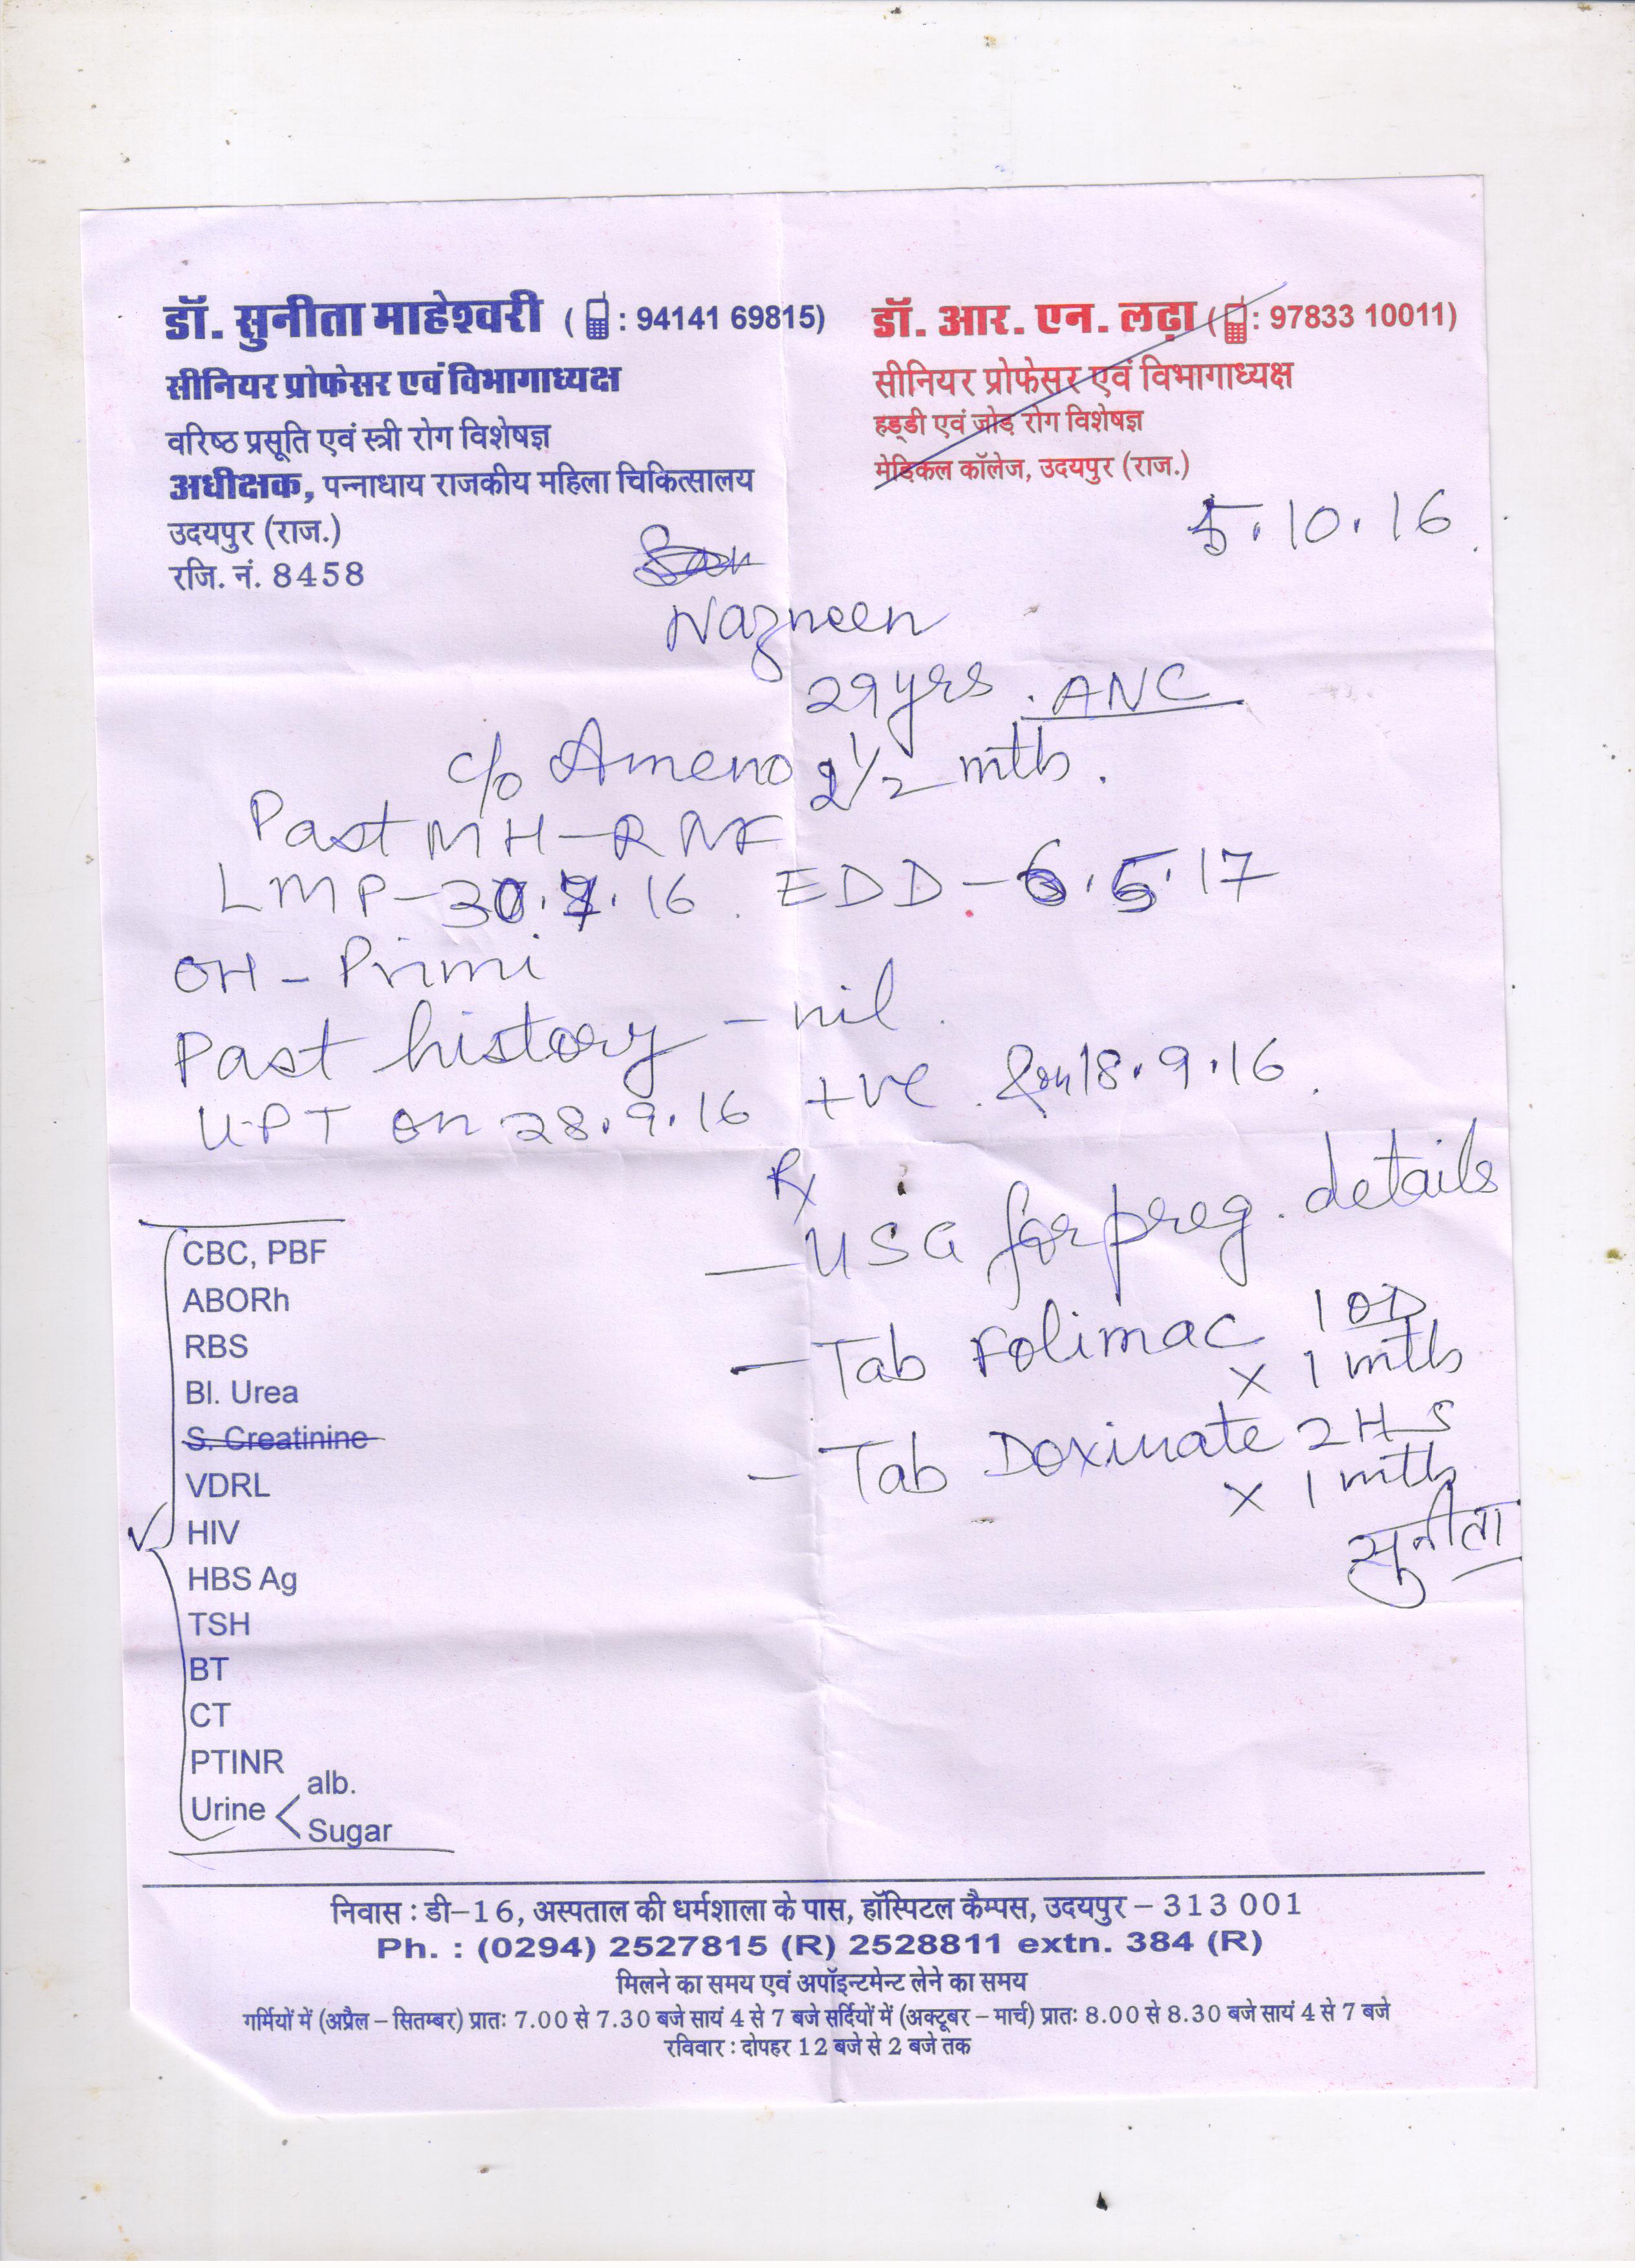 डॉ. सुनीता माहेश्वरी ( : 94141 69815)
सीनियर प्रोफेसर एवं विभागाध्यक्ष
वरिष्ठ प्रसूति एवं स्त्री रोग विशेषज्ञ
अधीक्षक, पन्नाधाय राजकीय महिला चिकित्सालय
उदयपुर (राज.)
रजि. नं. 8458
डॉ. आर. एन. लढ़ा ( : 97833 10011)
सीनियर प्रोफेसर एवं विभागाध्यक्ष
हड्डी एवं जोड़ रोग विशेषज्ञ
मेडिकल कॉलेज, उदयपुर (राज.)
5.10.16
Nazneen
29 yrs. ANC
c/o Ameno 2 1/2 mth.
Past MH - R
LMP - 30.7.16. EDD - 6.5.17
OH - Primi
Past history - nil.
U.P.T on 28.9.16 +ve. 18.9.16.
Rx
- USG for preg. details
- Tab Folimac 1 OD
x 1 mth
- Tab Doxinate 2 HS
x 1 mth
सुनीता
CBC, PBF
ABORh
RBS
Bl. Urea
S. Creatinine
VDRL
HIV
HBS Ag
TSH
BT
CT
PTINR
Urine < alb.
Sugar
निवास : डी-16, अस्पताल की धर्मशाला के पास, हॉस्पिटल कैम्पस, उदयपुर - 313 001
Ph. : (0294) 2527815 (R) 2528811 extn. 384 (R)
मिलने का समय एवं अपॉइन्टमेन्ट लेने का समय
गर्मियों में (अप्रैल - सितम्बर) प्रातः 7.00 से 7.30 बजे सायं 4 से 7 बजे सर्दियों में (अक्टूबर - मार्च) प्रातः 8.00 से 8.30 बजे सायं 4 से 7 बजे
रविवार : दोपहर 12 बजे से 2 बजे तक